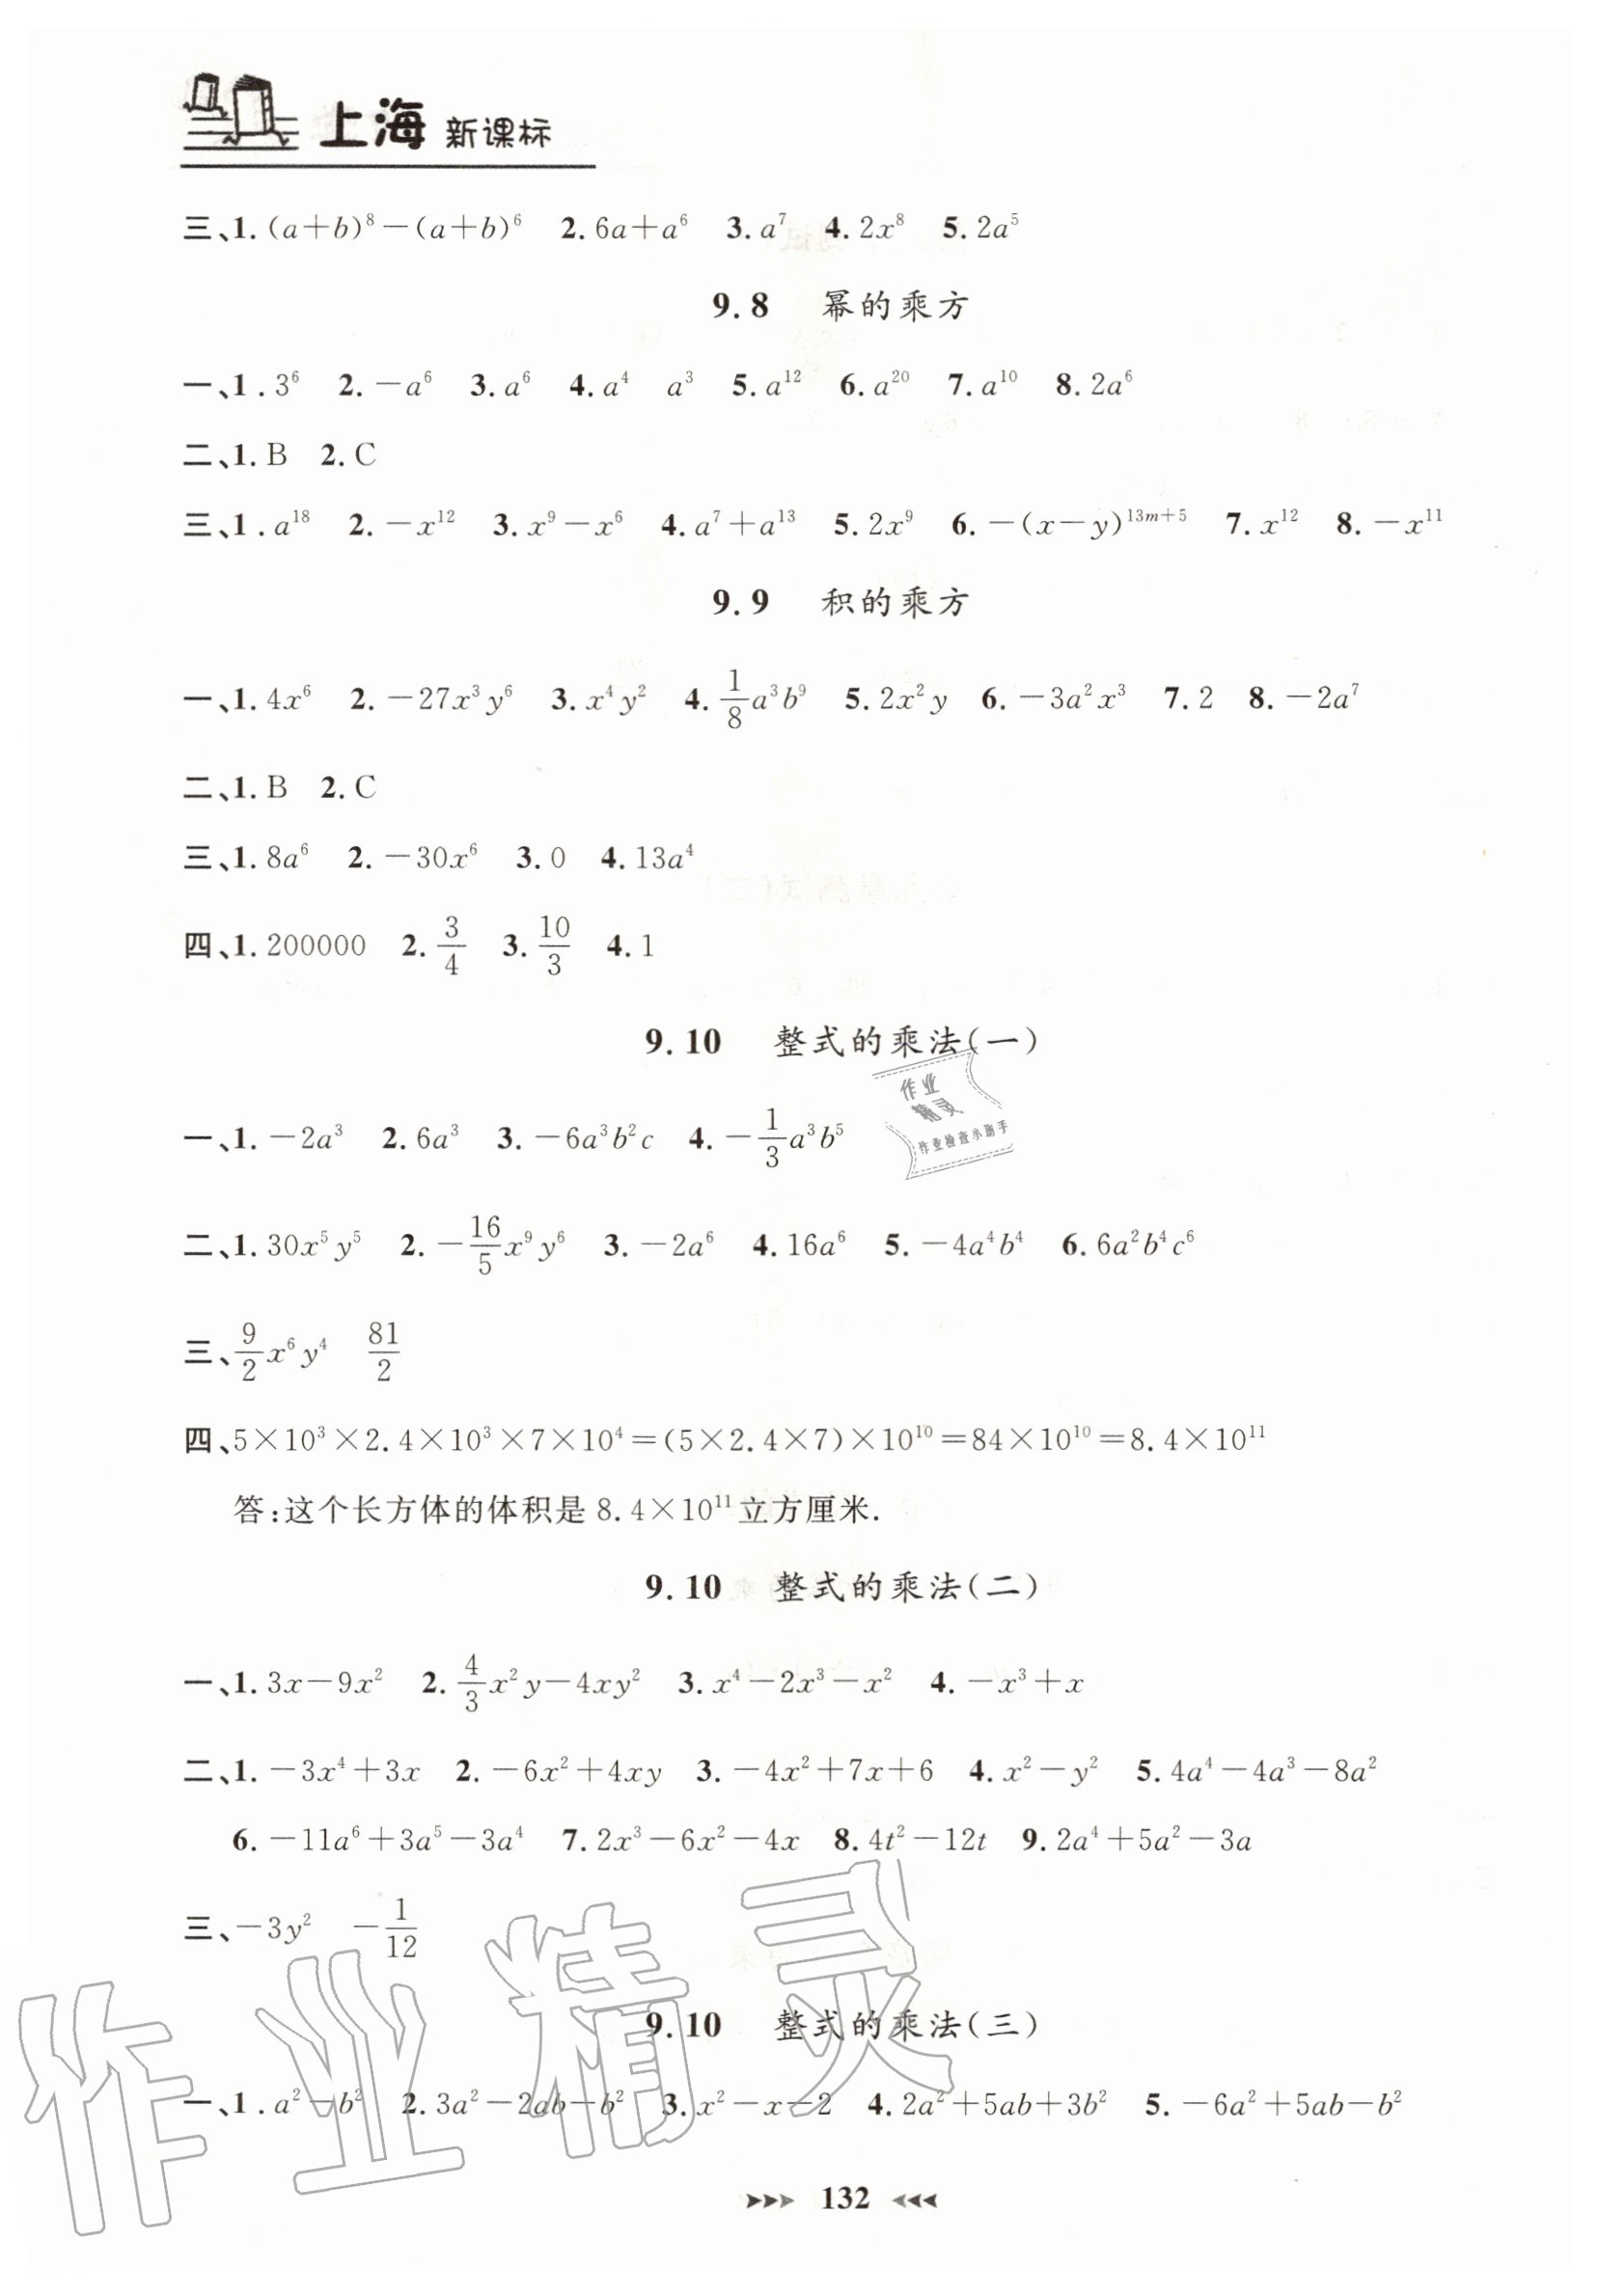 上海 新课标
三、1. (a+b)⁸－(a+b)⁶ 2. 6a+a⁶ 3. a⁷ 4. 2x⁸ 5. 2a⁵
9.8 幂的乘方
一、1. 3⁶ 2. －a⁶ 3. a⁶ 4. a⁴ a³ 5. a¹² 6. a²⁰ 7. a¹⁰ 8. 2a⁶
二、1. B 2. C
三、1. a¹⁸ 2. －x¹² 3. x⁹－x⁶ 4. a⁷＋a¹³ 5. 2x⁹ 6. －(x－y)¹³ᵐ⁺⁵ 7. x¹² 8. －x¹¹
9.9 积的乘方
一、1. 4x⁶ 2. －27x³y⁶ 3. x⁴y² 4. 1/8 a³b⁹ 5. 2x²y 6. －3a²x³ 7. 2 8. －2a⁷
二、1. B 2. C
三、1. 8a⁶ 2. －30x⁶ 3. 0 4. 13a⁴
四、1. 200000 2. 3/4 3. 10/3 4. 1
9.10 整式的乘法(一)
作业
精灵
作业检查小助手
一、1. －2a³ 2. 6a³ 3. －6a³b²c 4. －1/3 a³b⁵
二、1. 30x⁵y⁵ 2. －16/5 x⁹y⁶ 3. －2a⁶ 4. 16a⁶ 5. －4a⁴b⁴ 6. 6a²b⁴c⁶
三、9/2 x⁶y⁴ 81/2
四、5×10³×2.4×10³×7×10⁴＝(5×2.4×7)×10¹⁰＝84×10¹⁰＝8.4×10¹¹
答:这个长方体的体积是 8.4×10¹¹立方厘米.
9.10 整式的乘法(二)
一、1. 3x－9x² 2. 4/3 x²y－4xy² 3. x⁴－2x³－x² 4. －x³＋x
二、1. －3x⁴＋3x 2. －6x²＋4xy 3. －4x²＋7x＋6 4. x²－y² 5. 4a⁴－4a³－8a²
6. －11a⁶＋3a⁵－3a⁴ 7. 2x³－6x²－4x 8. 4t²－12t 9. 2a⁴＋5a²－3a
三、－3y² －1/12
作业精灵
9.10 整式的乘法(三)
一、1. a²－b² 2. 3a²－2ab－b² 3. x²－x－2 4. 2a²＋5ab＋3b² 5. －6a²＋5ab－b²
132